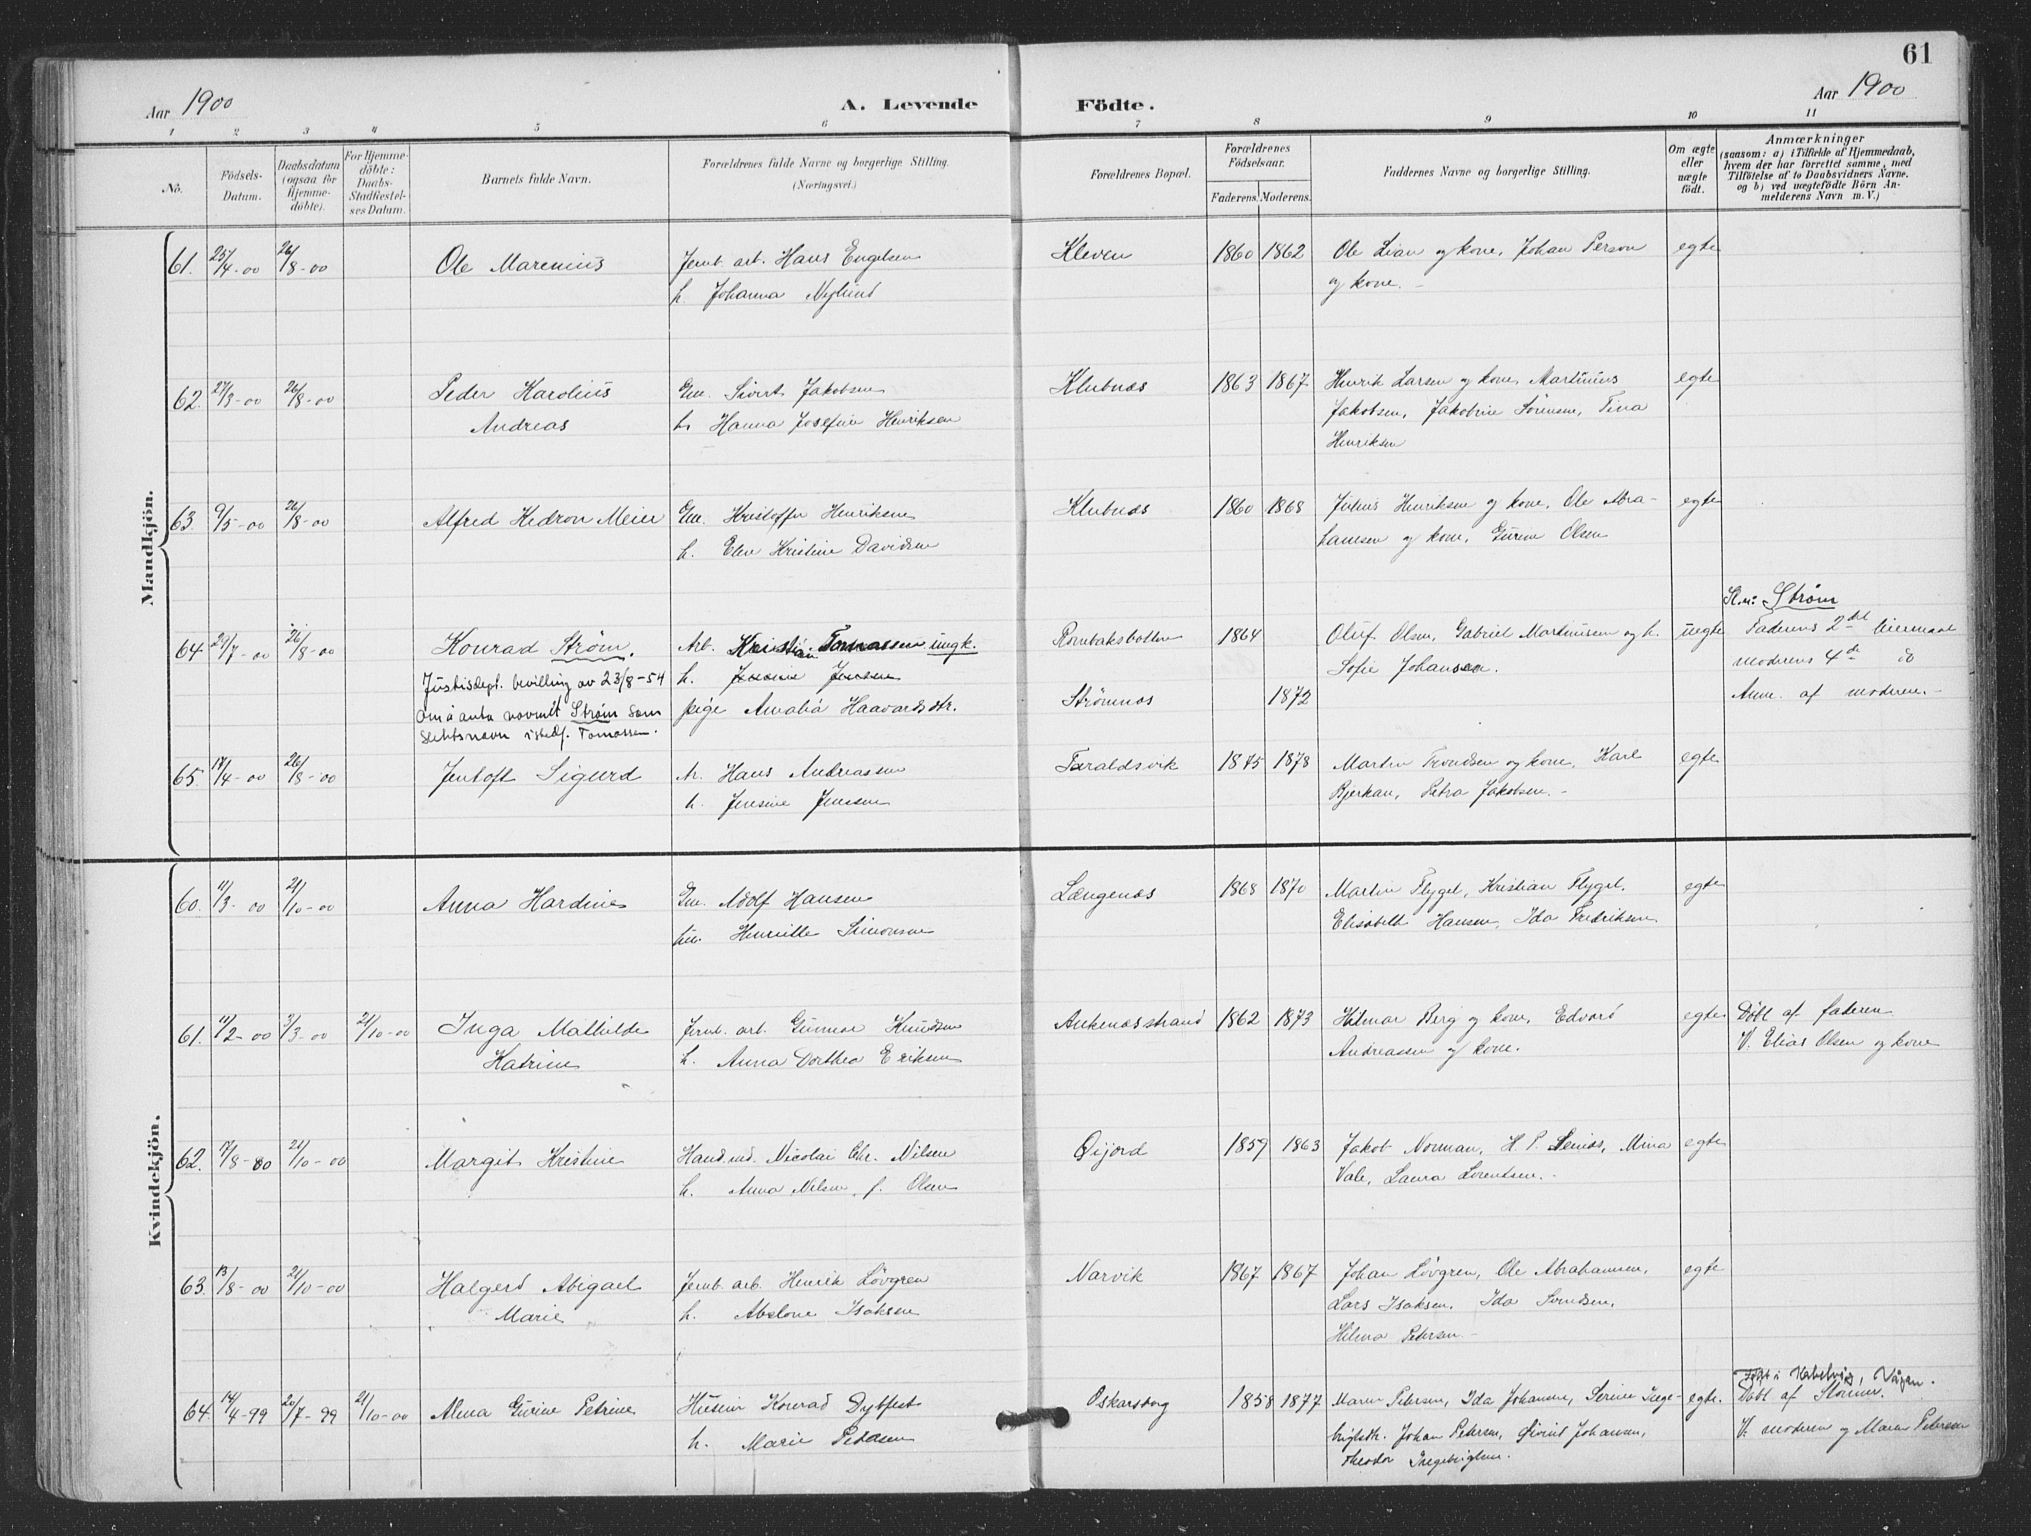 61
Aar 1900
A. Levende
Födte.
Aar 1900
1 2 3 4 5 6 7 8 9 10 11
No.
Födsels-Datum.
Daabsdatum (ogsaa for Hjemme-döbte).
For Hjemme-döbte: Daabs-Stadfæstel-ses Datum.
Barnets fulde Navn.
Forældrenes fulde Navne og borgerlige Stilling.
(Næringsvei.)
Forældrenes Bopæl.
Forældrenes Födselsaar.
Faderens. Moderens.
Faddernes Navne og borgerlige Stilling.
Om ægte eller uægte födt.
Anmærkninger
(saasom: a) i Tilfælde af Hjemmedaab,
hvem der har forrettet samme, med
Tilföielse af to Daabsvidners Navne.
og b) ved uægtefödte Börn An-
melderens Navn m. V.)
Mandkjön.
61. 25/4-00 26/8-00 Ole Marenius Jernb. arb. Hans Engelsen Kleven 1860 1862 Ole Lian og kone, Johan Person egte
h. Johanna Nylund og kone. -
62. 27/3-00 26/8-00 Peder Karolius Gm. Sivert Jakobsen Klubnæs 1863 1867 Henrik Larsen og kone, Martinius egte
Andreas h. Hanna Josefine Henriksen Jakobsen, Jakobine Sørensen, Tina
Henriksen
63 9/5-00 26/8-00 Alfred Kedron Meier Gm. Kristoffer Henriksen Klubnæs 1860 1868 Julius Henriksen og kone, Ole Abra- egte
h. Elen Kristine Davidsen hamsen og kone, Gurine Olsen
Sl.n: Strøm
64 29/7-00 26/8-00 Konrad Strøm. Arb. Kristian Tomassen ungk. Rombaksbotten 1864 Oluf Olsen, Gabriel Martinusen og h. uegte Faderens 2det leiermaal
Justisdept. bevilling av 23/8-54 h. Jensine Jensen Sofie Johansen. moderens 4de do
om å anta navnet Strøm som pige Amalia Haavardsdtr. Strømnes 1872 Anm. af moderen. -
slektsnavn istedf. Tomassen.
65. 17/4-00 26/8-00 Jentoft Sigurd Ar. Hans Andreassen Taraldsvik 1875 1878 Martin Trondsen og kone, Karl egte
h. Jensine Jensen Bjerkan, Petra Jakobsen. -
Kvindekjön.
60. 11/3-00 21/10-00 Anna Hardine Gm. Adolf Hansen Længenæs 1868 1870 Martin Flygel, Kristian Flygel. egte
hu. Henriette Simonsen Elisabeth Hansen, Ida Fredriksen
61. 11/2-00 3/3-00 21/10-00 Inga Mathilde Jernb. arb. Gunnar Knudsen Ankenæsstrand 1862 1873 Hilmar Berg og kone, Edvard egte Døbt af faderen
Katrine h. Anna Dorthea Eriksen Andreassen og kone. V. Elias Olsen og kone
62. 17/8-00 21/10-00 Margit Kristine Handmd. Nicolai Chr. Nilsen Øijord 1859 1863 Jakob Norman, H. P. Mina egte
h. Anna Nilsen f. Olsen Vale, Laura Lorentsen. -
63. 13/8-00 21/10-00 Halgerd Abigael Jernb. arb. Henrik Løvgren Narvik 1867 1867 Johan Løvgren, Ole Abrahamsen, egte
Marie h. Abelone Isaksen Lars Isaksen, Ida Svendsen,
Hilma Petersen. -
Født i Kabelvåg, Vågan.
64 14/4-99 20/7-99 21/10-00 Alma Gurine Petrine Husein Konrad Dybfest Oskarsborg 1858 1877 Maren Petersen, Ida Johansen, Serine Inge- egte. Døbt af
h. Marie Pedersen brigtsdt. Johan Petersen, Sivint Johansen, V. moderen og Maren Petersen
Theodor Ingebrigtsen.